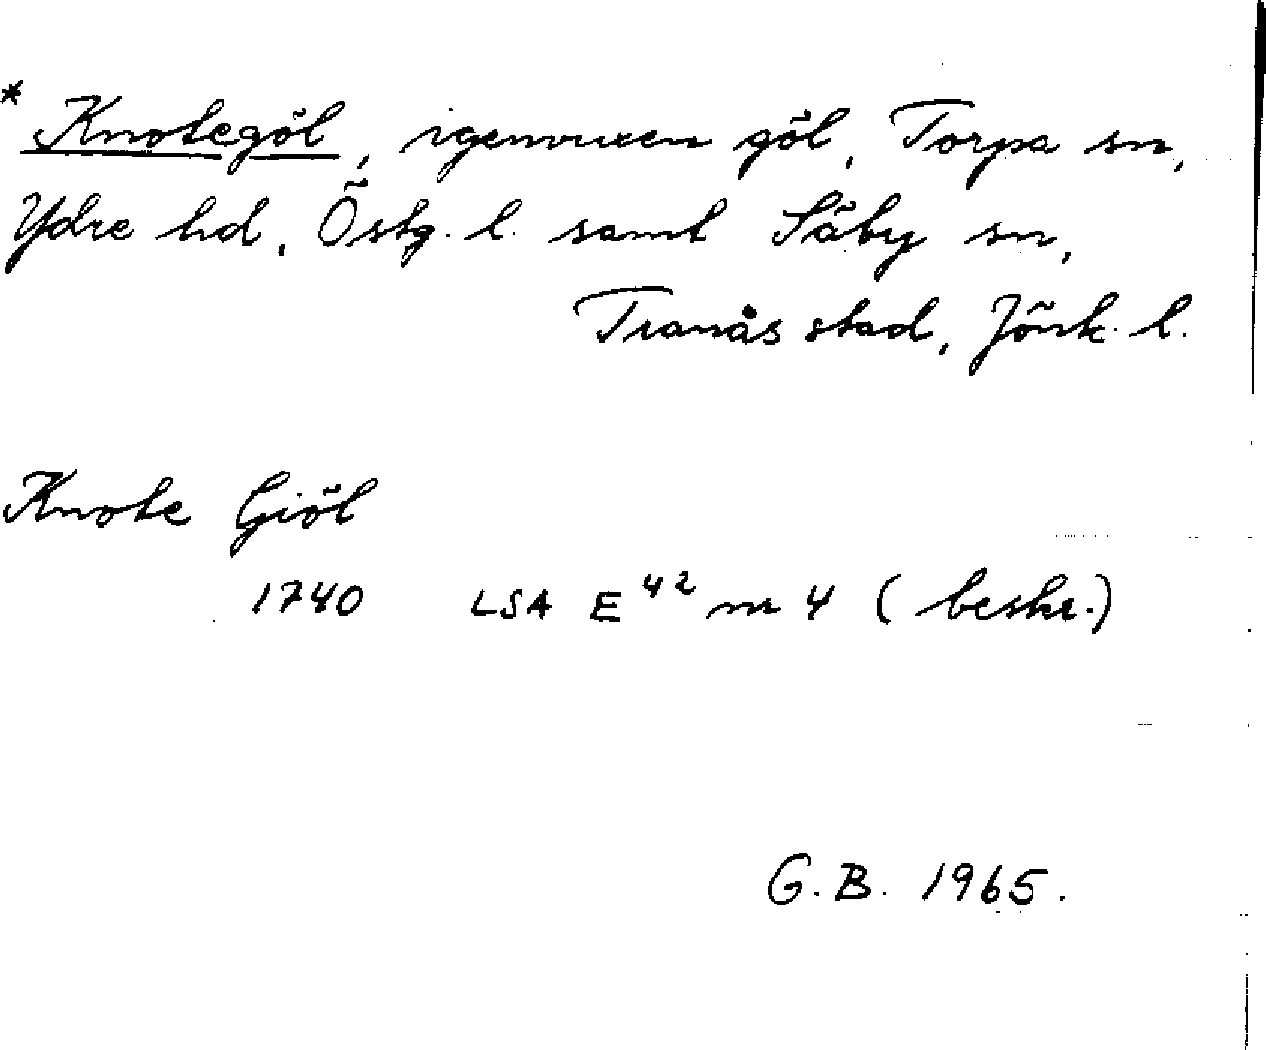 * Knotegöl, igenvuxen göl, Torpa sn,
Ydre hd, Östg. l. samt Säby sn,
Tranås stad, Jönk. l.
Knote Giöl
1740 LSA E⁴² nr 4 (beskr.)
G.B. 1965.